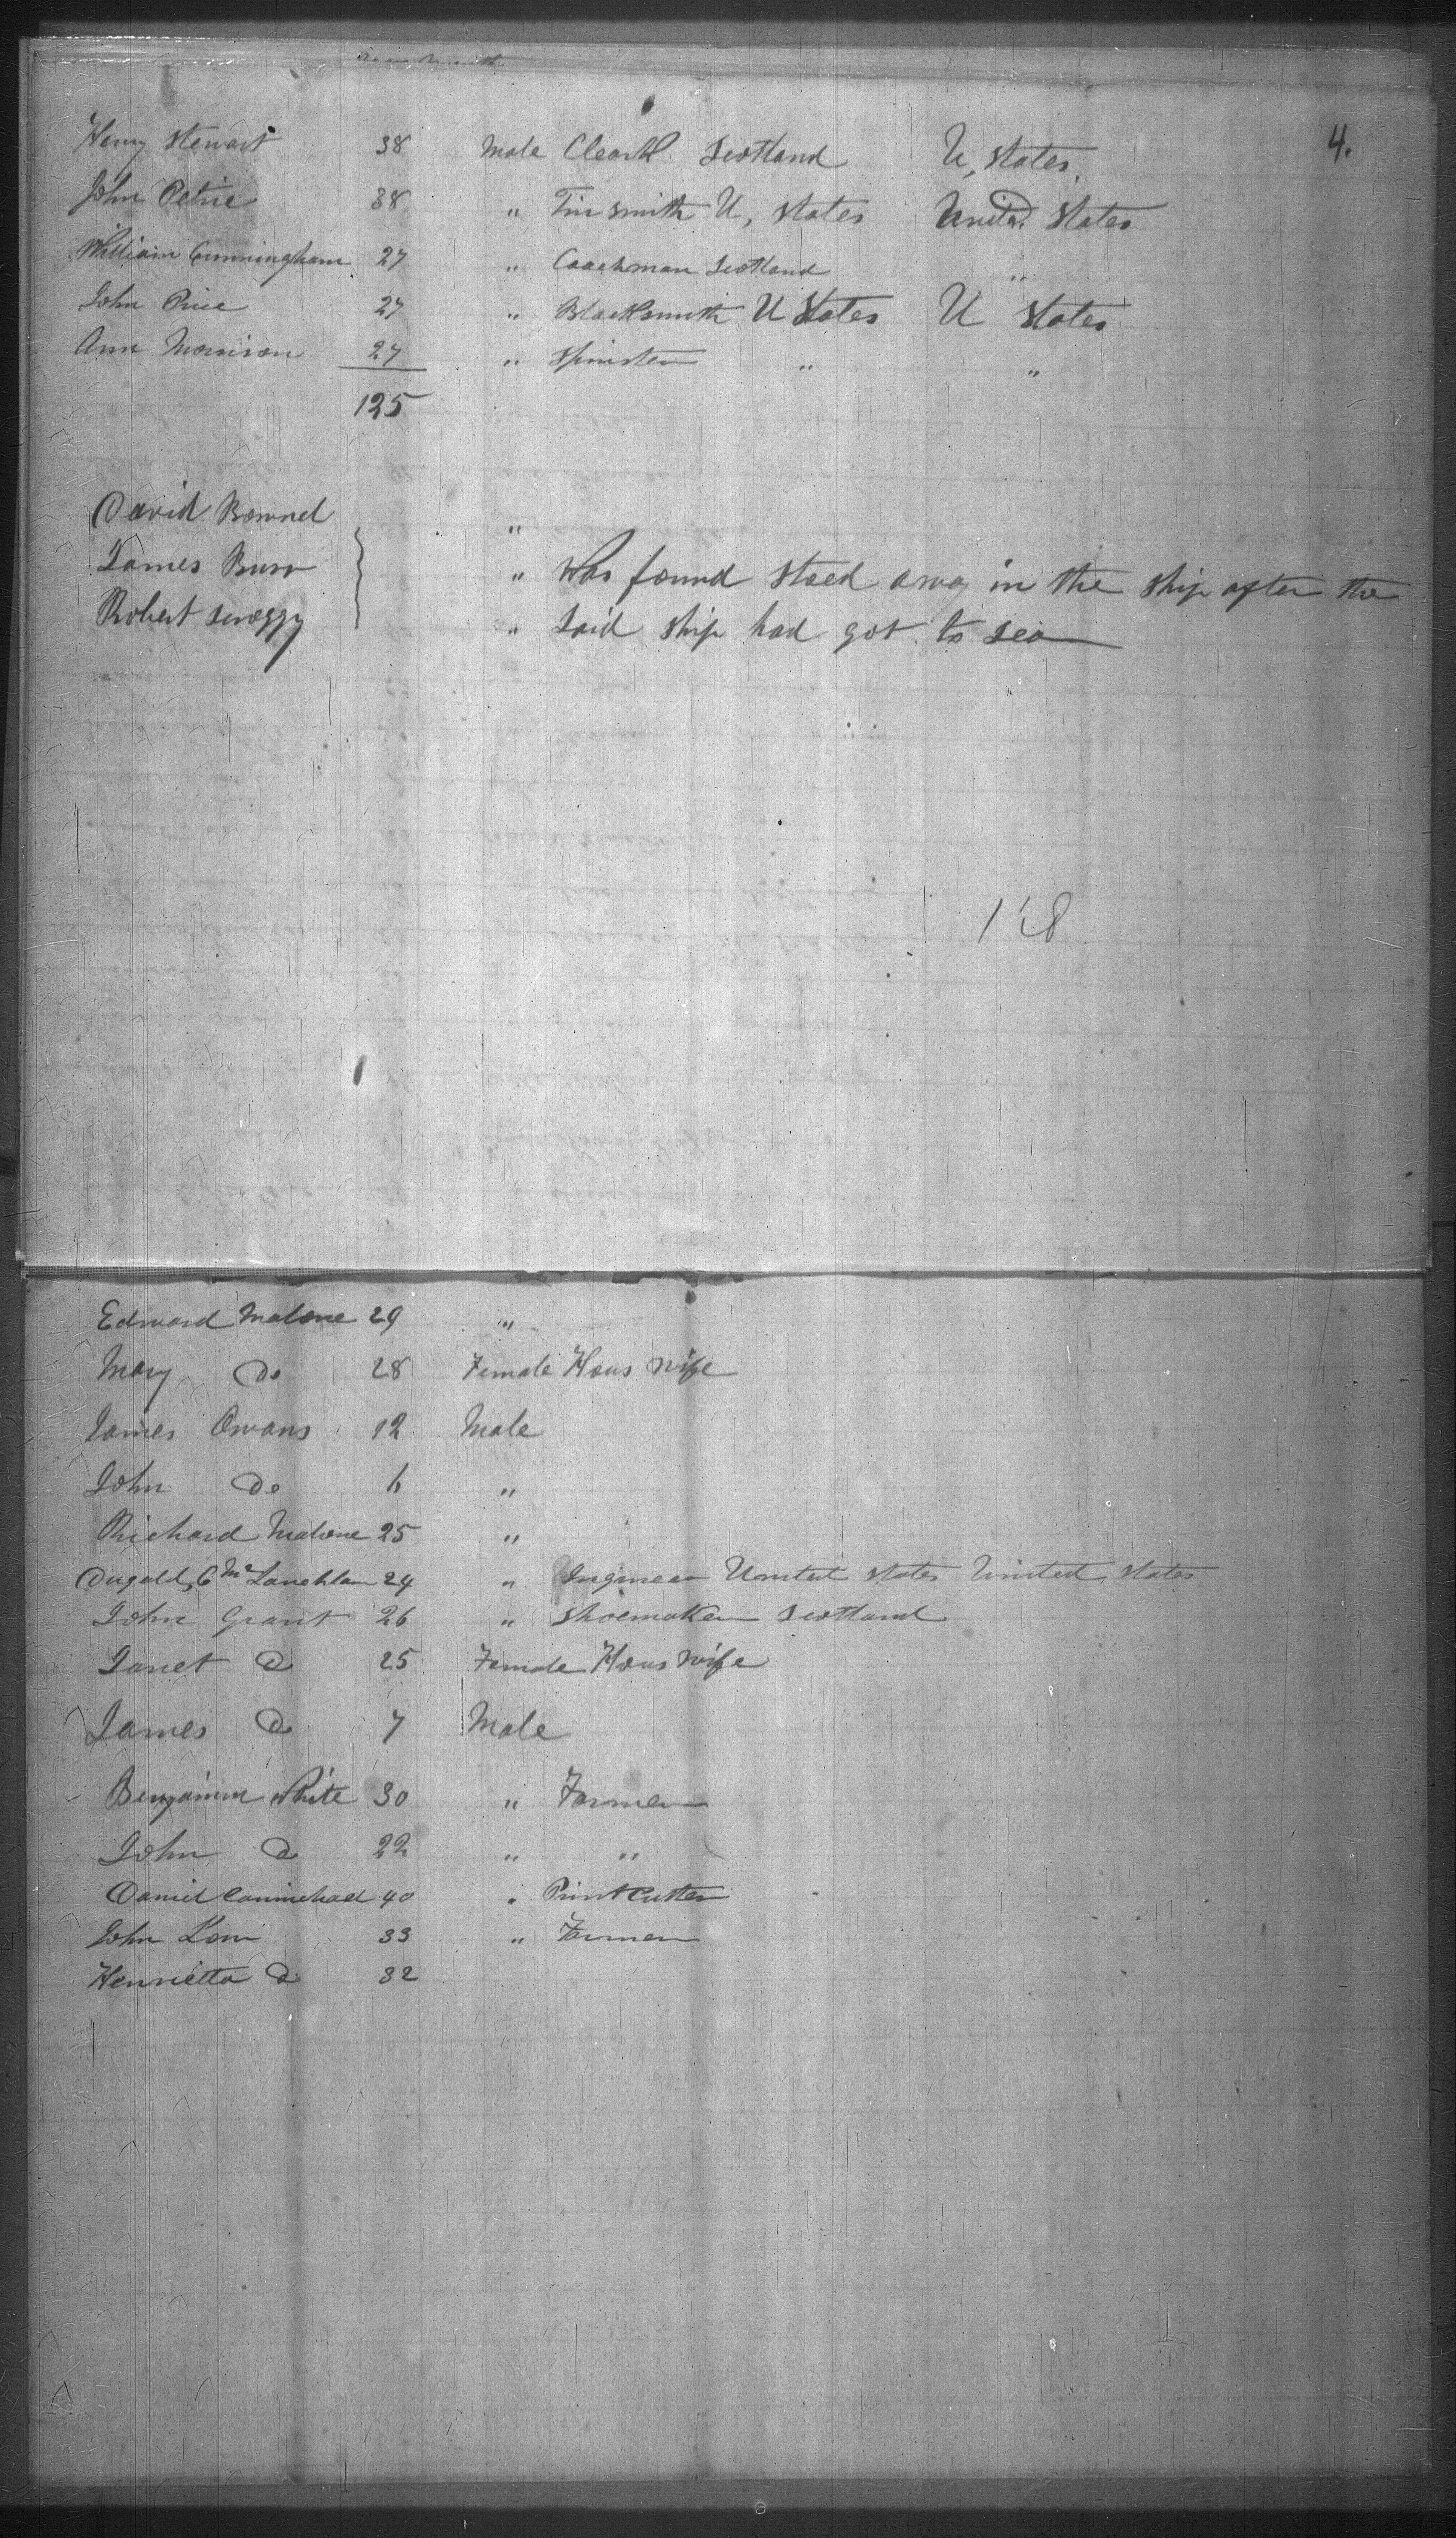 4.
Henry Stewart 38 Male Cleark Scotland U, States,
John Petrie 38 " Tin smith U, States United States
William Cunningham 27 " Coachman Scotland "
John Price 27 " Blacksmith U States U States
Ann Morrison 27 " Spinster " "
125
David Bownel "
James Burr " Was found stoed away in the ship after the
Robert Scroggy " Said ship had got to sea
128
Edward Malone 29 "
Mary Do 28 Female Hous Wife
James Owans 12 Male
John Do 6 "
Richard Malone 25 "
Dugald C McLauchlan 24 " Ingineer United States United States
John Grant 26 " Shoemaker Scotland
Janet Do 25 Female Hous Wife
James Do 7 Male
Benjamin White 30 " Farmer
John Do 22 " "
Daniel Carmichael 40 " Print Cutter
John 33 " Farmer
Henrietta Do 32